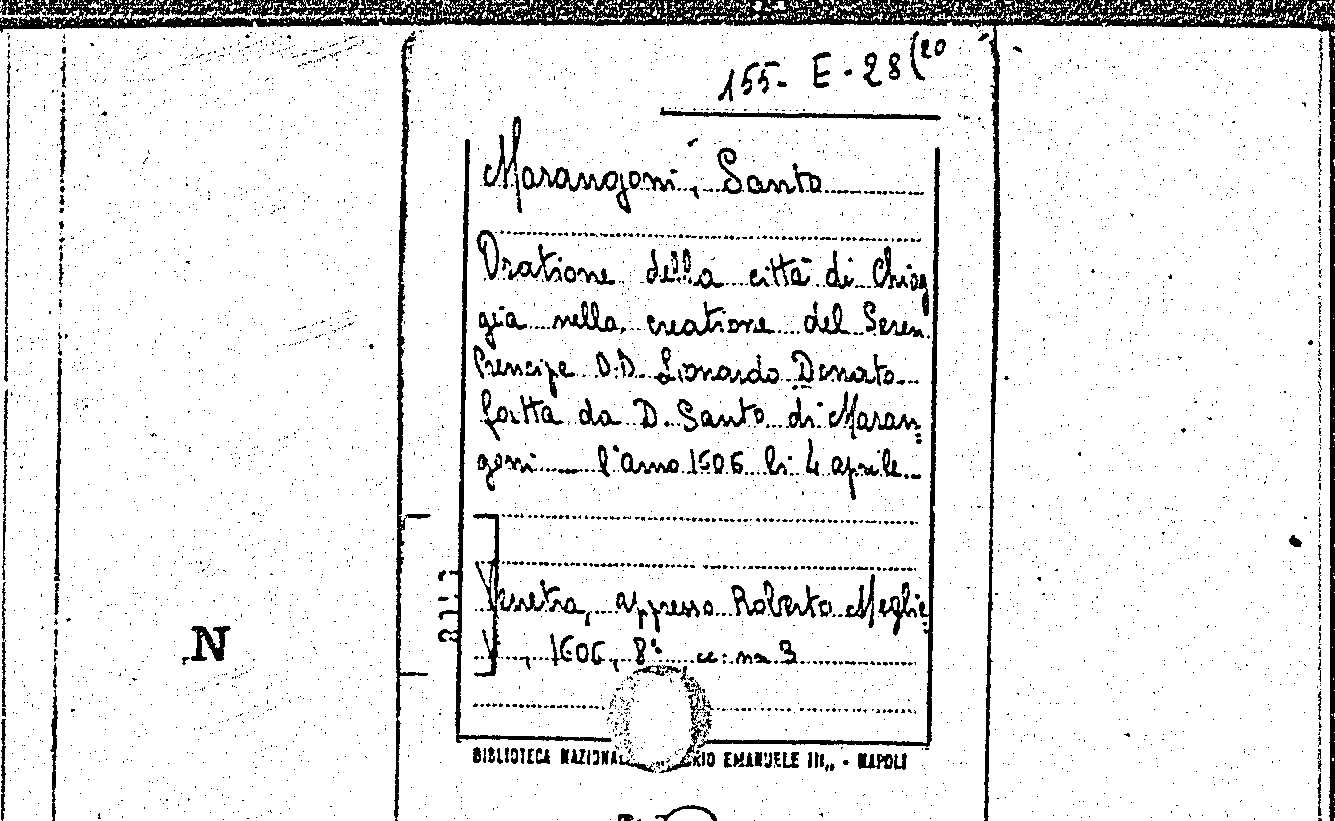 155- E-28(20
Marangoni, Santo
Oratione della città di Chiog
gia nella creatione del Seren.
Prencipe D.D. Lionardo Donato
fatta da D. Santo di Maran=
goni l'anno 1606 li 4 aprile
Venetia, appresso Roberto Meglie
tti, 1606, 8º, cc. nn 3
N
BIBLIOTECA NAZIONA RIO EMANUELE III,, - NAPOLI